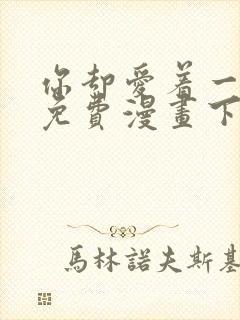 你却愛着一
免費漫畫下
馬林諾夫斯基